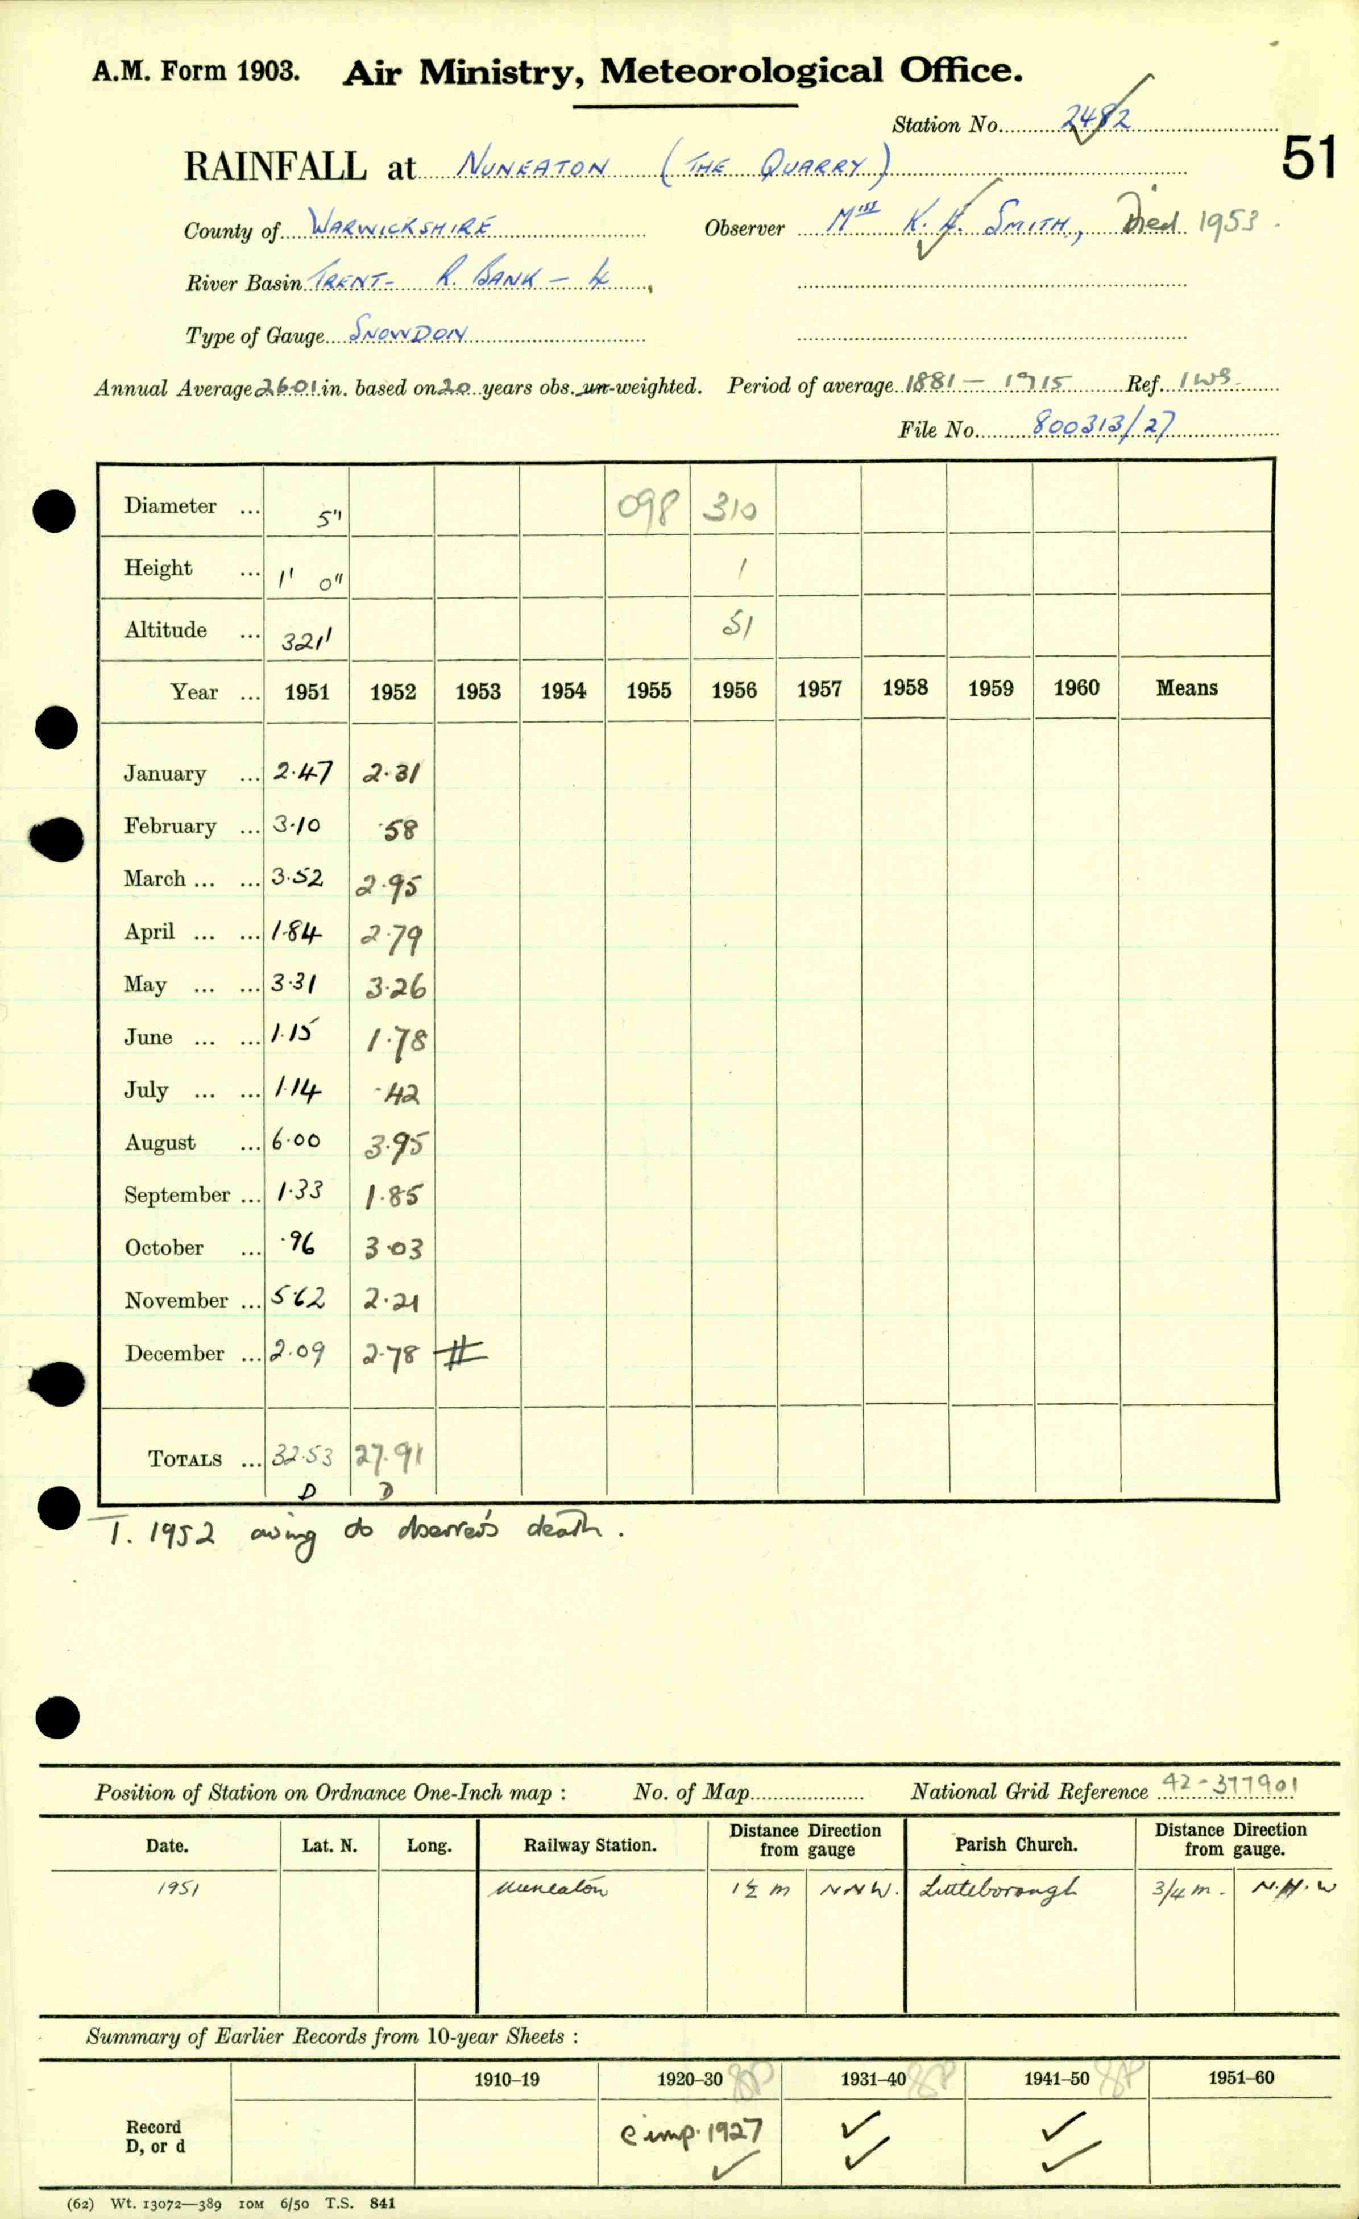 A.M. Form 1903. Air Ministry, Meteorological Office.
Station No. 2482
RAINFALL at NUNEATON (THE QUARRY)
51
County of WARWICKSHIRE Observer K. H. SMITH, Died 1953.
River Basin TRENT- R. BANK - 4
Type of Gauge SNOWDON
Annual Average 26.01 in. based on 20 years obs. un-weighted. Period of average 1881 - 1915 Ref. IWS
File No. 800313/27
Diameter ... 5" 098 310
Height ... 1' 0" 1
Altitude ... 321' 51
Year ... 1951 1952 1953 1954 1955 1956 1957 1958 1959 1960 Means
January ... 2.47 2.31
February ... 3.10 .58
March ... ... 3.52 2.95
April ... ... 1.84 2.79
May ... ... 3.31 3.26
June ... ... 1.15 1.78
July ... ... 1.14 .42
August ... 6.00 3.95
September ... 1.33 1.85
October ... .96 3.03
November ... 5.62 2.21
December ... 2.09 2.78 #
TOTALS ... 32.53 27.91
D D
T. 1952 owing to observer's death.
Position of Station on Ordnance One-Inch map : No. of Map National Grid Reference 42-377901
Date. Lat. N. Long. Railway Station. Distance Direction from gauge Parish Church. Distance Direction from gauge.
1951 Nuneaton 1½ m NNW. Attleborough 3/4 m. N.N.W
Summary of Earlier Records from 10-year Sheets :
1910–19 1920–30 1931–40 1941–50 1951–60
Record D, or d c imp. 1927 ✓ ✓ ✓ ✓ ✓
(62) Wt. 13072—389 10M 6/50 T.S. 841